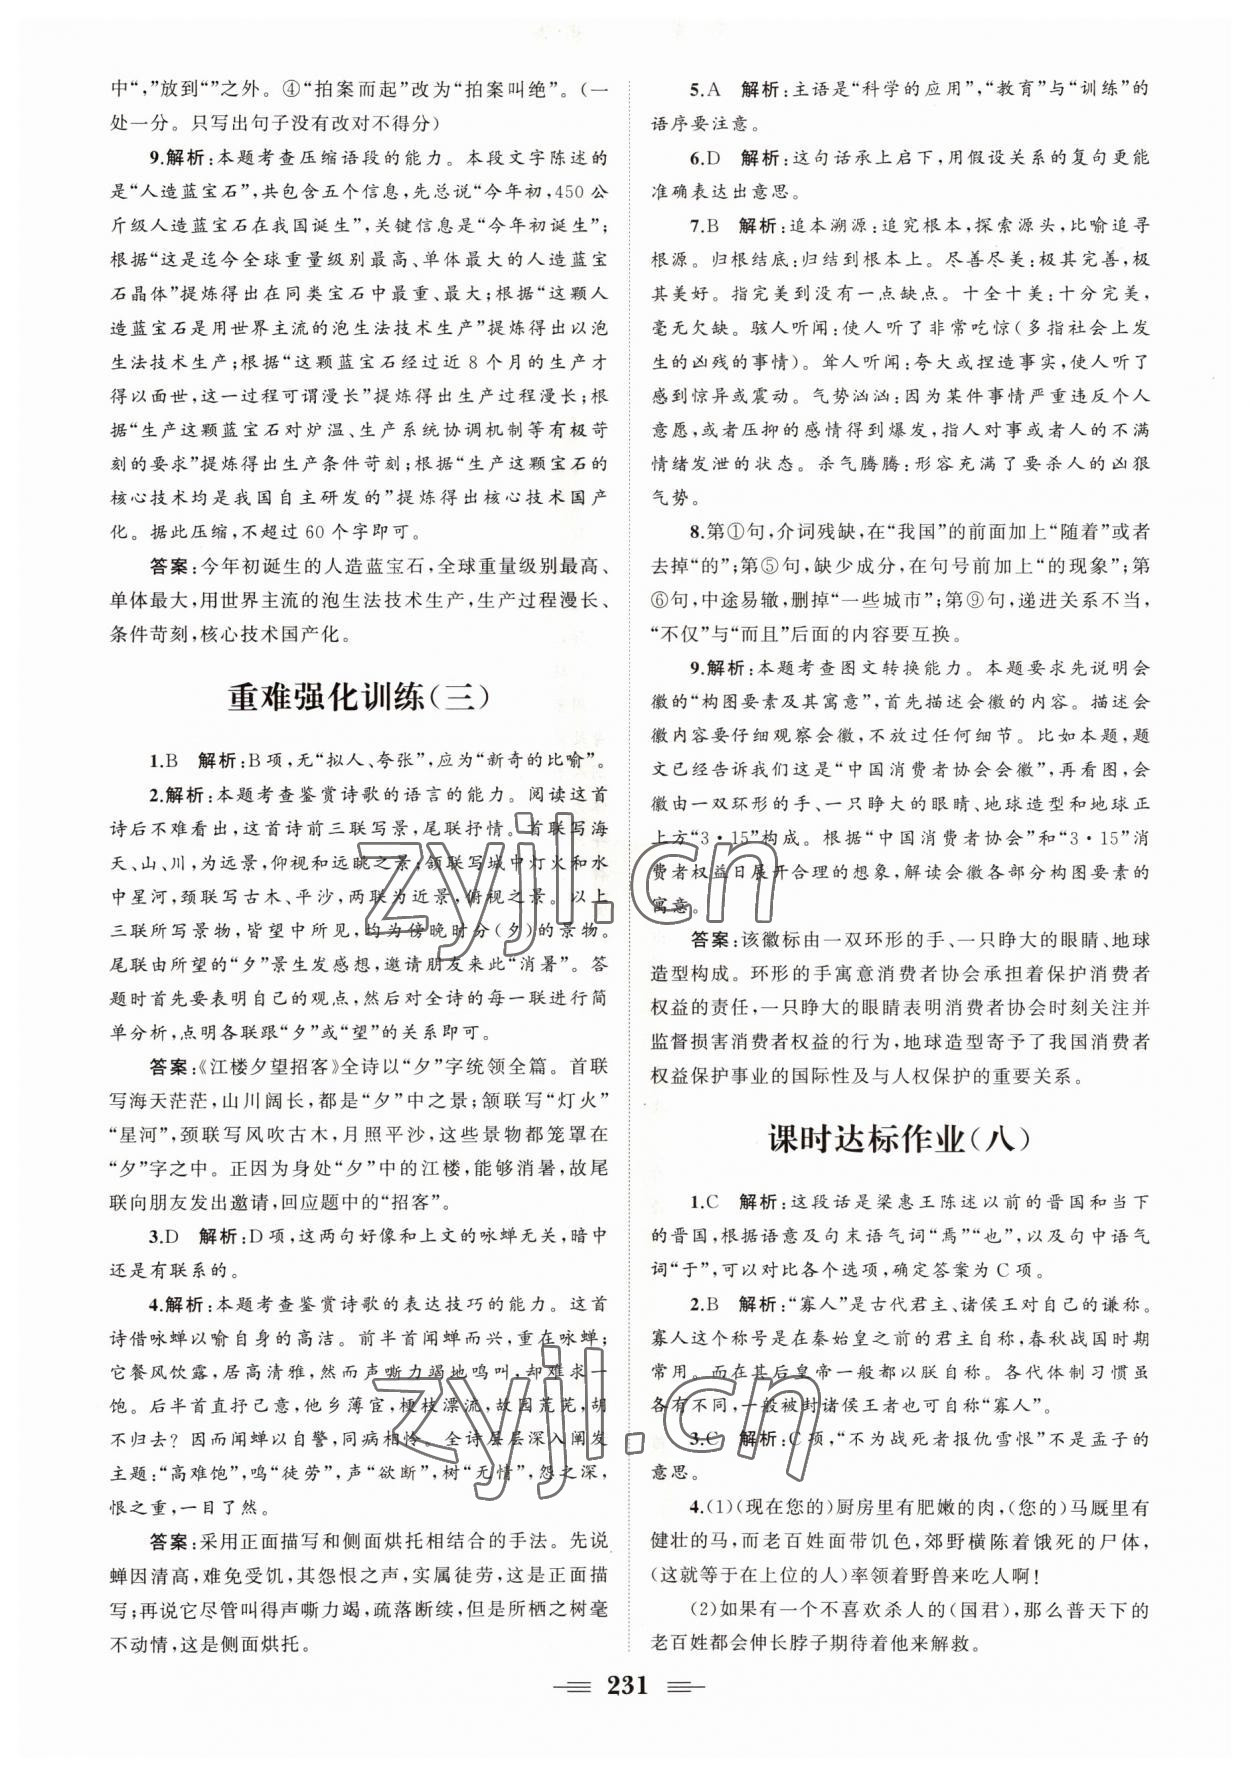 中“，”放到“”之外。④“拍案而起”改为“拍案叫绝”。（一
处一分。只写出句子没有改对不得分）
9.解析：本题考查压缩语段的能力。本段文字陈述的
是“人造蓝宝石”，共包含五个信息，先总说“今年初，450公
斤级人造蓝宝石在我国诞生”，关键信息是“今年初诞生”；
根据“这是迄今全球重量级别最高、单体最大的人造蓝宝
石晶体”提炼得出在同类宝石中最重、最大；根据“这颗人
造蓝宝石是用世界主流的泡生法技术生产”提炼得出以泡
生法技术生产；根据“这颗蓝宝石经过近8个月的生产才
得以面世，这一过程可谓漫长”提炼得出生产过程漫长；根
据“生产这颗蓝宝石对炉温、生产系统协调机制等有极苛
刻的要求”提炼得出生产条件苛刻；根据“生产这颗宝石的
核心技术均是我国自主研发的”提炼得出核心技术国产
化。据此压缩，不超过60个字即可。
答案：今年初诞生的人造蓝宝石，全球重量级别最高、
单体最大，用世界主流的泡生法技术生产，生产过程漫长、
条件苛刻，核心技术国产化。
重难强化训练（三）
1.B 解析：B项，无“拟人、夸张”，应为“新奇的比喻”。
2.解析：本题考查鉴赏诗歌的语言的能力。阅读这首
诗后不难看出，这首诗前三联写景，尾联抒情。首联写海
天、山、川，为远景，仰视和远眺之景；颔联写城中灯火和水
中星河，颈联写古木、平沙，两联为近景，俯视之景。以上
三联所写景物，皆望中所见，均为傍晚时分（夕）的景物。
尾联由所望的“夕”景生发感想，邀请朋友来此“消暑”。答
题时首先要表明自己的观点，然后对全诗的每一联进行简
单分析，点明各联跟“夕”或“望”的关系即可。
答案：《江楼夕望招客》全诗以“夕”字统领全篇。首联
写海天茫茫，山川阔长，都是“夕”中之景；颔联写“灯火”
“星河”，颈联写风吹古木，月照平沙，这些景物都笼罩在
“夕”字之中。正因为身处“夕”中的江楼，能够消暑，故尾
联向朋友发出邀请，回应题中的“招客”。
3.D 解析：D项，这两句好像和上文的咏蝉无关，暗中
还是有联系的。
4.解析：本题考查鉴赏诗歌的表达技巧的能力。这首
诗借咏蝉以喻自身的高洁。前半首闻蝉而兴，重在咏蝉；
它餐风饮露，居高清雅，然而声嘶力竭地鸣叫，却难求一
饱。后半首直抒己意，他乡薄宦，梗枝漂流，故园荒芜，胡
不归去？因而闻蝉以自警，同病相怜。全诗层层深入阐发
主题：“高难饱”，鸣“徒劳”，声“欲断”，树“无情”，怨之深，
恨之重，一目了然。
答案：采用正面描写和侧面烘托相结合的手法。先说
蝉因清高，难免受饥，其怨恨之声，实属徒劳，这是正面描
写；再说它尽管叫得声嘶力竭，疏落断续，但所栖之树毫
不动情，这是侧面烘托。
5.A 解析：主语是“科学的应用”，“教育”与“训练”的
语序要注意。
6.D 解析：这句话承上启下，用假设关系的复句更能
准确表达出意思。
7.B 解析：追本溯源：追究根本，探索源头，比喻追寻
根源。归根结底：归结到根本上。尽善尽美：极其完善，极
其美好。指完美到没有一点缺点。十全十美：十分完美，
毫无欠缺。骇人听闻：使人听了非常吃惊（多指社会上发
生的凶残的事情）。耸人听闻：夸大或捏造事实，使人听了
感到惊异或震动。气势汹汹：因为某件事情严重违反个人
意愿，或者压抑的感情得到爆发，指人对事或者人的不满
情绪发泄的状态。杀气腾腾：形容充满了要杀人的凶狠
气势。
8.第①句，介词残缺，在“我国”的前面加上“随着”或者
去掉“的”；第⑤句，缺少成分，在句号前加上“的现象”；第
⑥句，中途易辙，删掉“一些城市”；第⑨句，递进关系不当，
“不仅”与“而且”后面的内容要互换。
9.解析：本题考查图文转换能力。本题要求先说明会
徽的“构图要素及其寓意”，首先描述会徽的内容。描述会
徽内容要仔细观察会徽，不放过任何细节。比如本题，题
文已经告诉我们这是“中国消费者协会会徽”，再看图，会
徽由一双环形的手、一只睁大的眼睛、地球造型和地球正
上方“3·15”构成。根据“中国消费者协会”和“3·15”消
费者权益日展开合理的想象，解读会徽各部分构图要素的
寓意。
答案：该徽标由一双环形的手、一只睁大的眼睛、地球
造型构成。环形的手寓意消费者协会承担着保护消费者
权益的责任，一只睁大的眼睛表明消费者协会时刻关注并
监督损害消费者权益的行为，地球造型寄予了我国消费者
权益保护事业的国际性及与人权保护的重要关系。
课时达标作业（八）
1.C 解析：这段话是梁惠王陈述以前的晋国和当下
的晋国，根据语意及句末语气词“焉”“也”，以及句中语气
词“于”，可以对比各个选项，确定答案为C项。
2.B 解析：“寡人”是古代君主、诸侯王对自己的谦称。
寡人这个称号是在秦始皇之前的君主自称，春秋战国时期
常用。而在其后皇帝一般都以朕自称。各代体制习惯虽
各有不同，一般被封诸侯王者也可自称“寡人”。
3.C 解析：C项，“不为战死者报仇雪恨”不是孟子的
意思。
4.(1)(现在您的)厨房里有肥嫩的肉，(您的)马厩里有
健壮的马，而老百姓面带饥色，郊野横陈着饿死的尸体，
(这就等于在上位的人)率领着野兽来吃人啊！
(2)如果有一个不喜欢杀人的(国君)，那么普天下的
老百姓都会伸长脖子期待着他来解救。
231
zyjl.cn
zyjl.cn